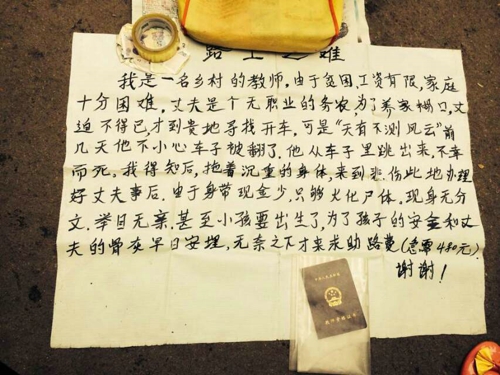 路上之难
我是一名乡村的教师,由于贫困,工资有限,家庭
十分困难,丈夫是个无职业的务农,为了养家糊口,丈
迫不得已,才到贵地寻找开车,可是“天有不测风云”前
几天他不小心车子被翻了.他从车子里跳出来,不幸
而死。我得知后,抱着沉重的身体,来到悲伤此地办理
好丈夫事后.由于身带现金少,只够火化尸体.现身无分
文.举目无亲.甚至小孩要出生了,为了孩子的安全和丈
夫的骨灰早日安埋,无奈之下才来求助路费(急需480元).
谢谢!